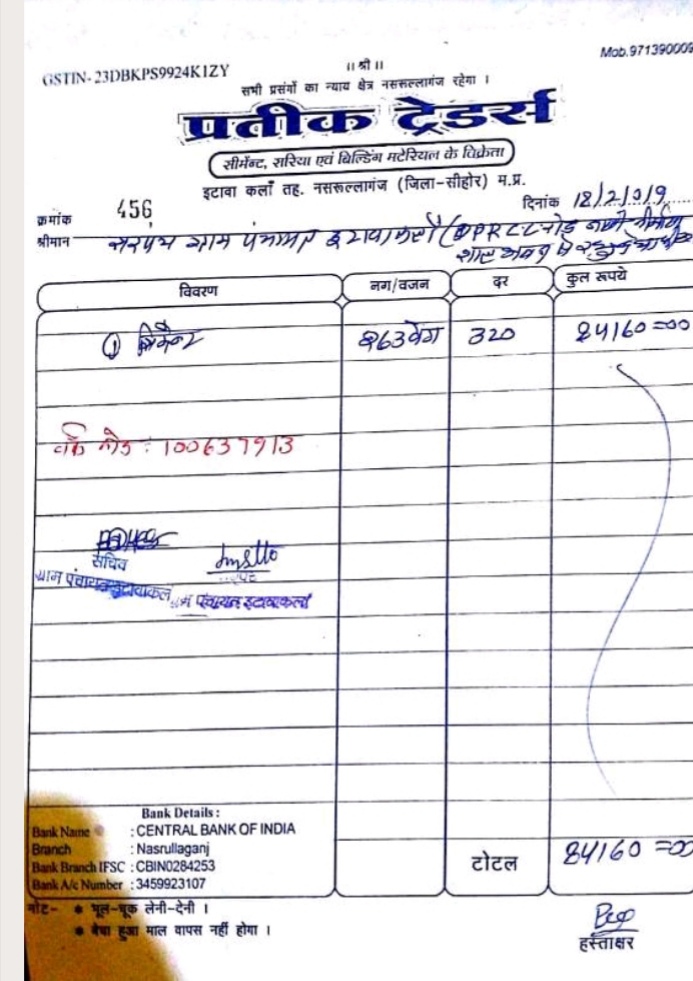 GSTIN- 23DBKPS9924K1ZY
॥ श्री ॥
Mob.971390009
सभी प्रसंगों का न्याय क्षेत्र नसरूल्लागंज रहेगा ।
प्रतीक ट्रेडर्स
सीमेंन्ट, सरिया एवं बिल्डिंग मटेरियल के विक्रेता
इटावा कलाँ तह. नसरूल्लागंज (जिला-सीहोर) म.प्र.
क्रमांक 456
दिनांक 18/2/019
श्रीमान सरपंच ग्राम पंचायत इटावाकलाँ
विवरण नग/वजन दर कुल रूपये
① 263 बेग 320 84160=00
वर्क कोड : 100637913
सचिव
ग्राम पंचायत इटावाकलां
ग्राम पंचायत इटावाकलां
Bank Details :
Bank Name : CENTRAL BANK OF INDIA
Branch : Nasrullaganj
Bank Branch IFSC : CBIN0284253
Bank A/c Number : 3459923107
टोटल 84160=00
नोट- * भूल-चूक लेनी-देनी ।
* बेचा हुआ माल वापस नहीं होगा ।
हस्ताक्षर